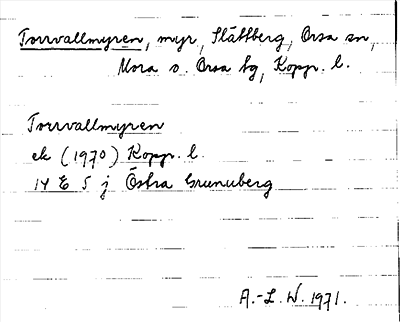 Torrvallmyren, myr, Slättberg, Orsa sn,
Mora o. Orsa tg, Kopp. l.
Torrvallmyren
ek (1970) Kopp. l.
14 E 5 j Östra Grunuberg
A.-L. W. 1971.